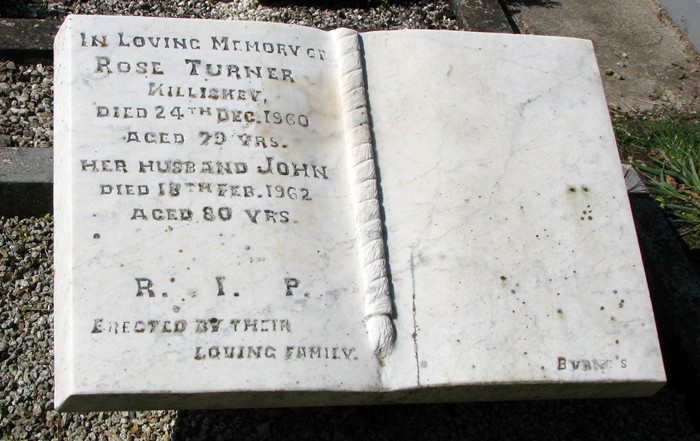 In Loving Memory of
Rose Turner
Killiskey,
Died 24th Dec. 1960
Aged 79 yrs.
Her Husband John
Died 18th Feb. 1962
Aged 80 yrs.
R. I. P.
Erected by their
loving family.
Byrne's